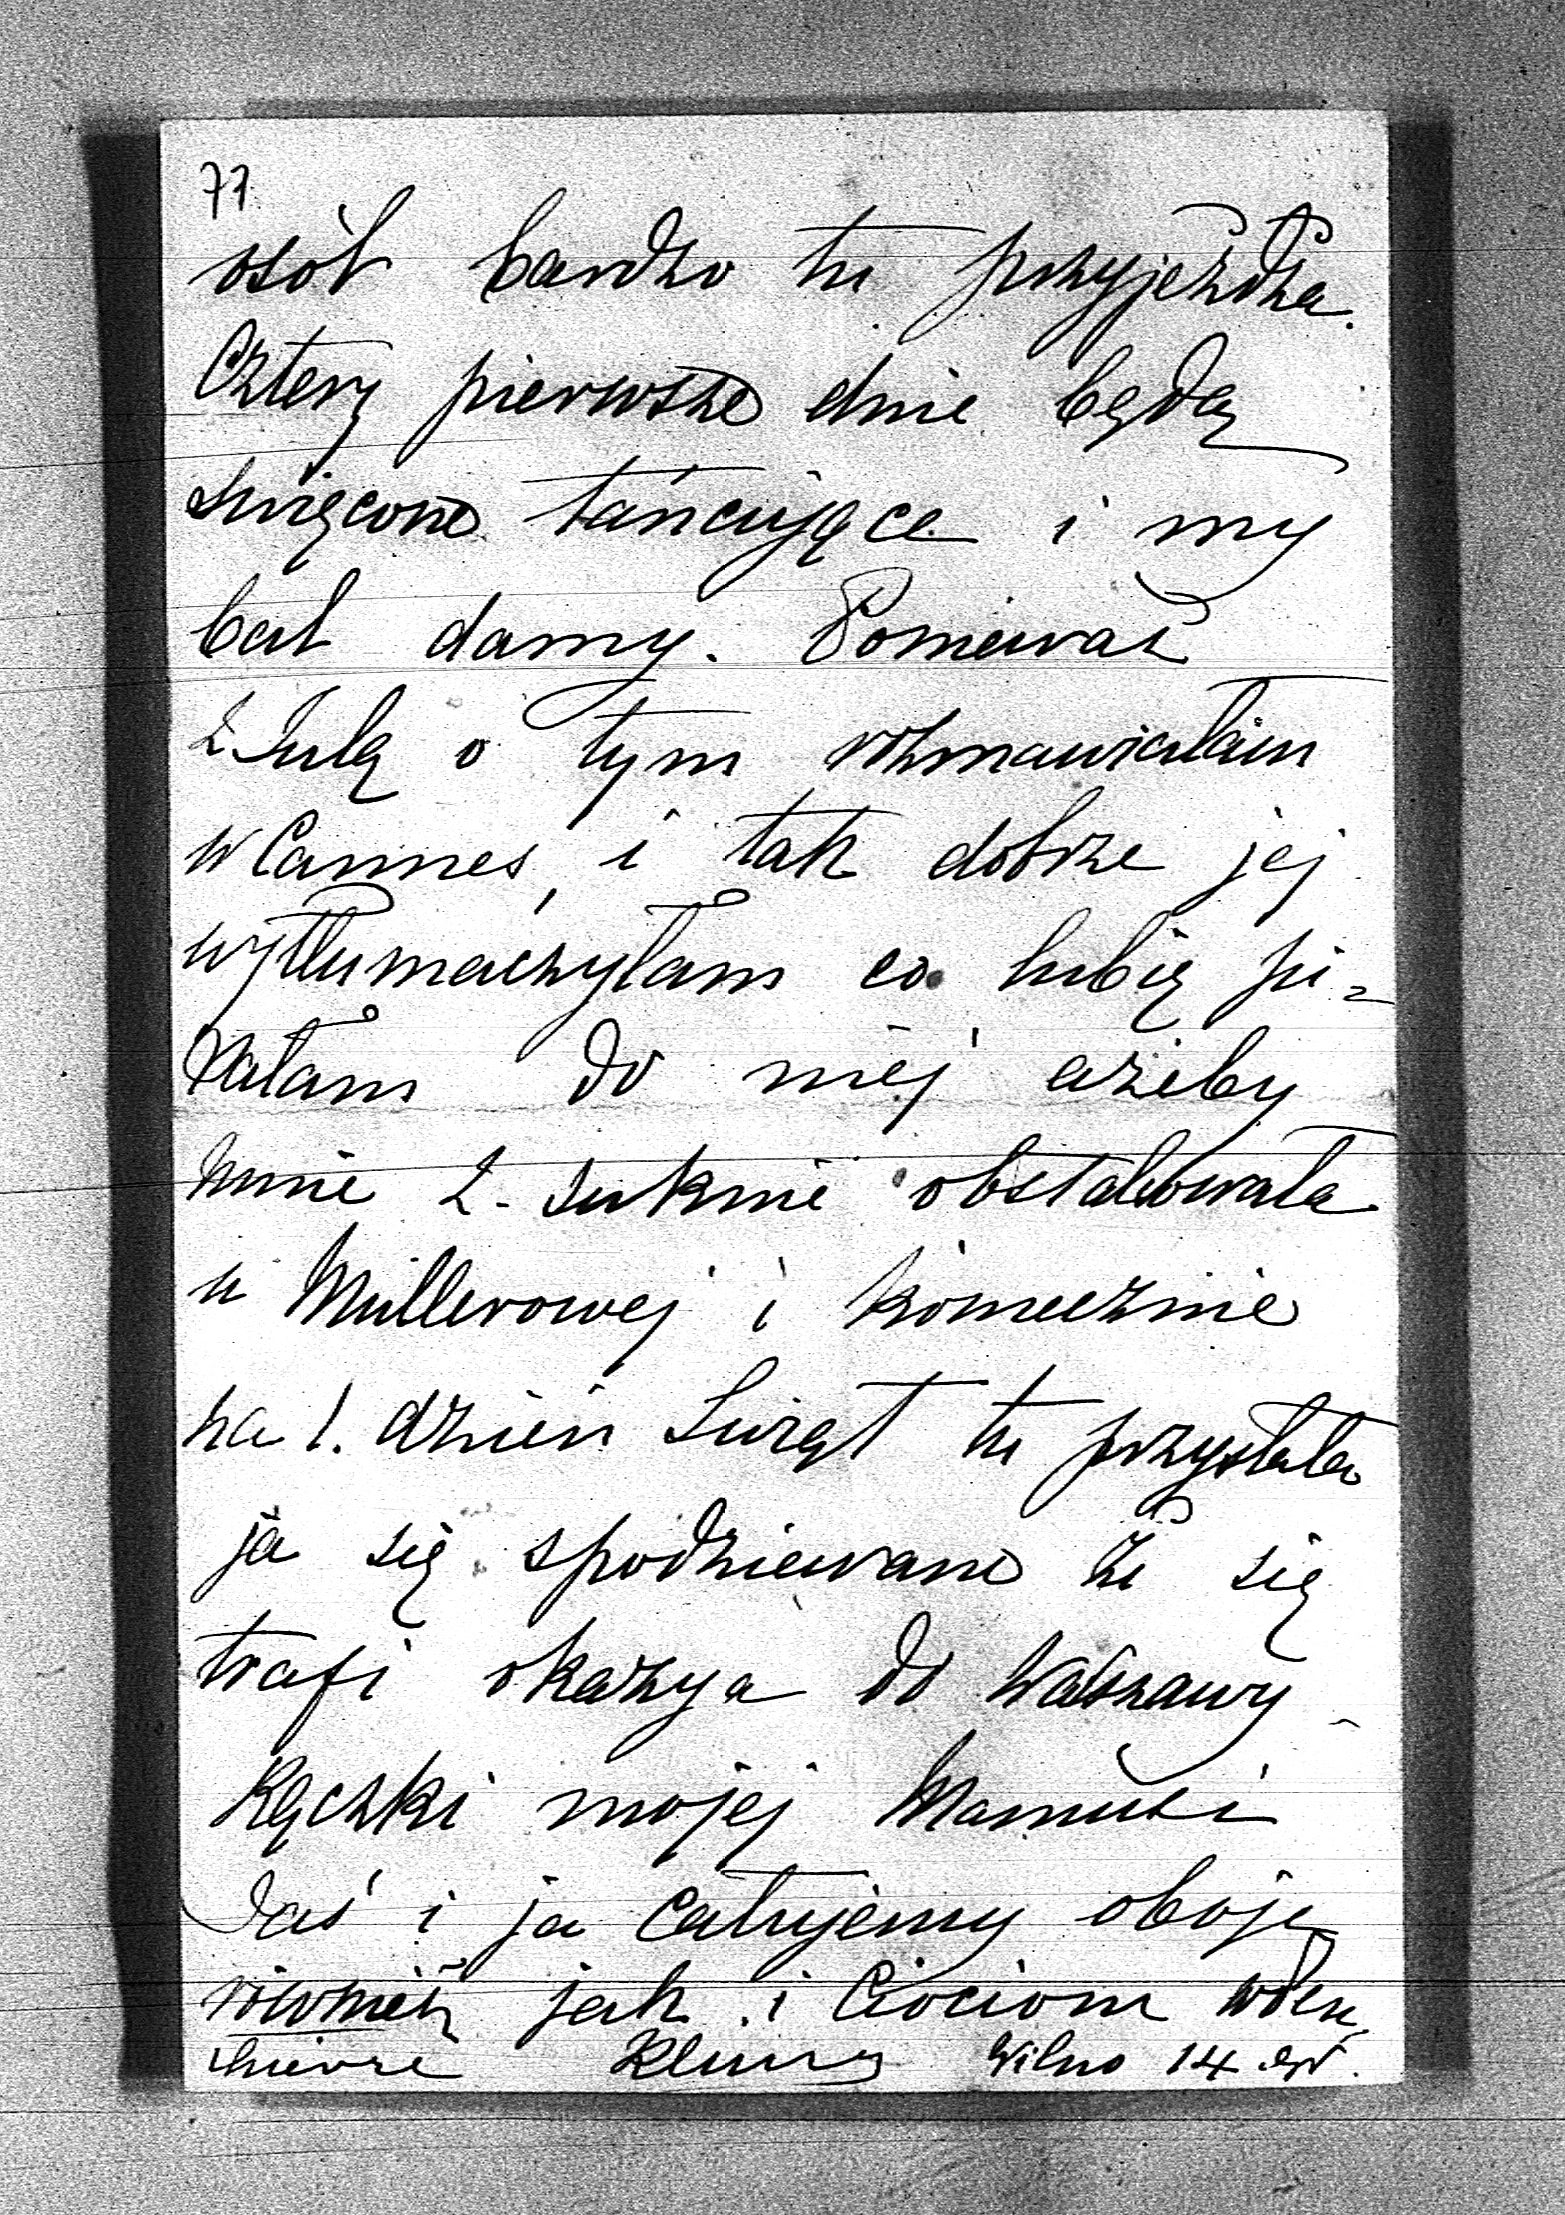 71
osób bardzo tu przyjeżdża.
Cztery pierwsze dnie będą
święcone tańcujące i my
bal damy. Ponieważ
z Julą o tym rozmawiałam
w Cannes, i tak dobrze jej
wytłumaczyłam co lubię pi=
sałam do niej ażeby
mnie 2. suknie obstalowała
u Mullerowej i koniecznie
na 1. dzień Świąt tu przysłała
ja się spodziewam że się
trafi okazya do Warszawy
Rączki mojej Mamusi
Jaś i ja całujemy oboje
również jak i Ciociom
Wilno 14